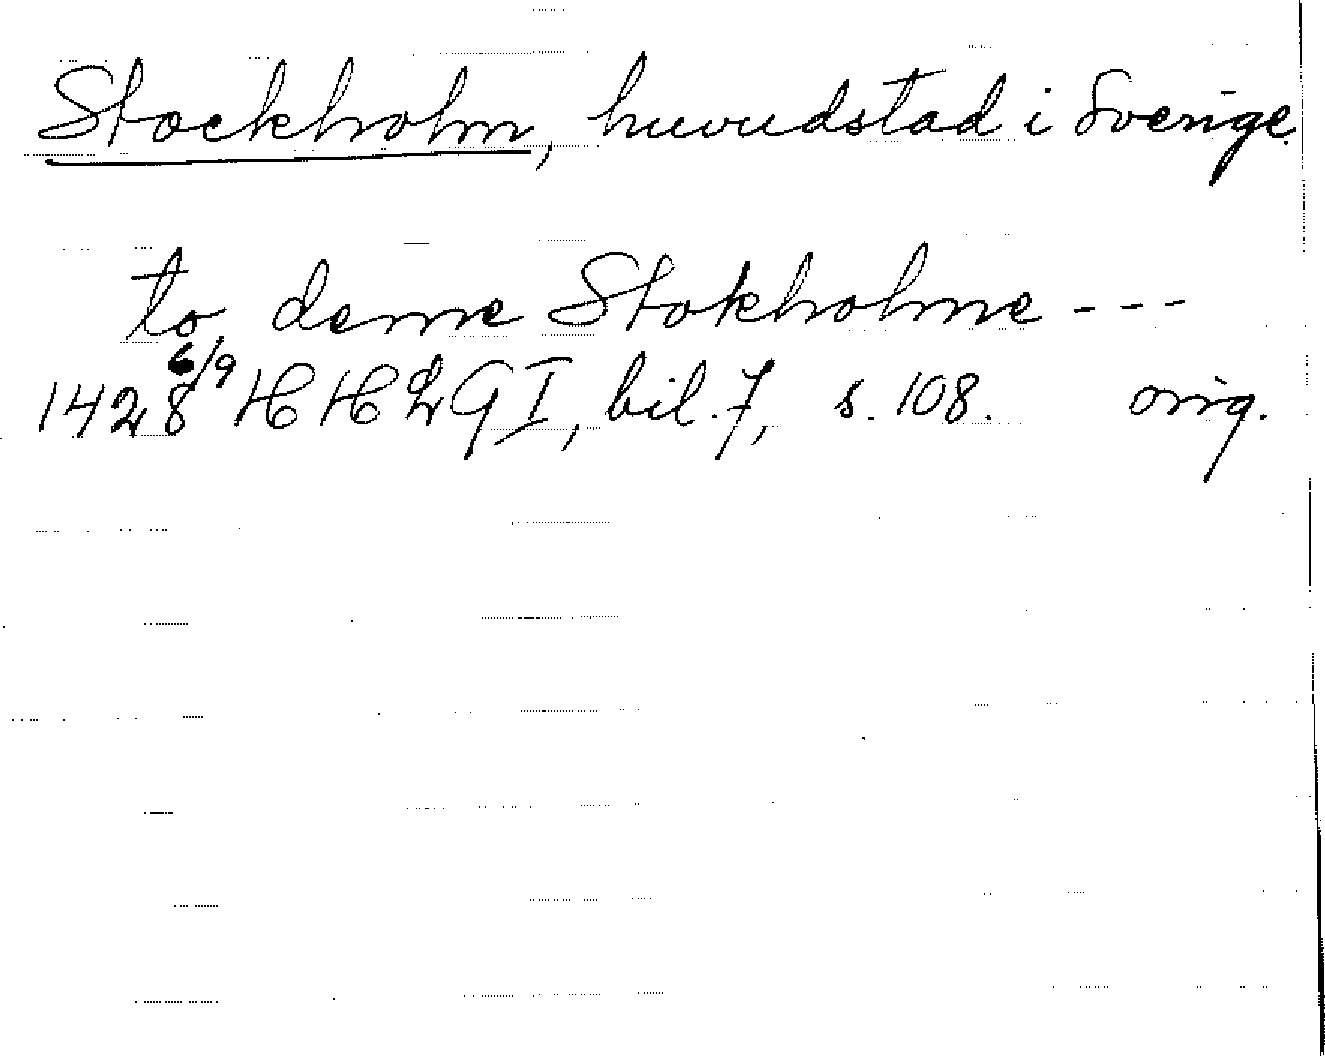 Stockholm, huvudstad i Sverige.
to deme Stokholme ---
1428 6/9 HH L G I, bil. 7, s. 108. orig.